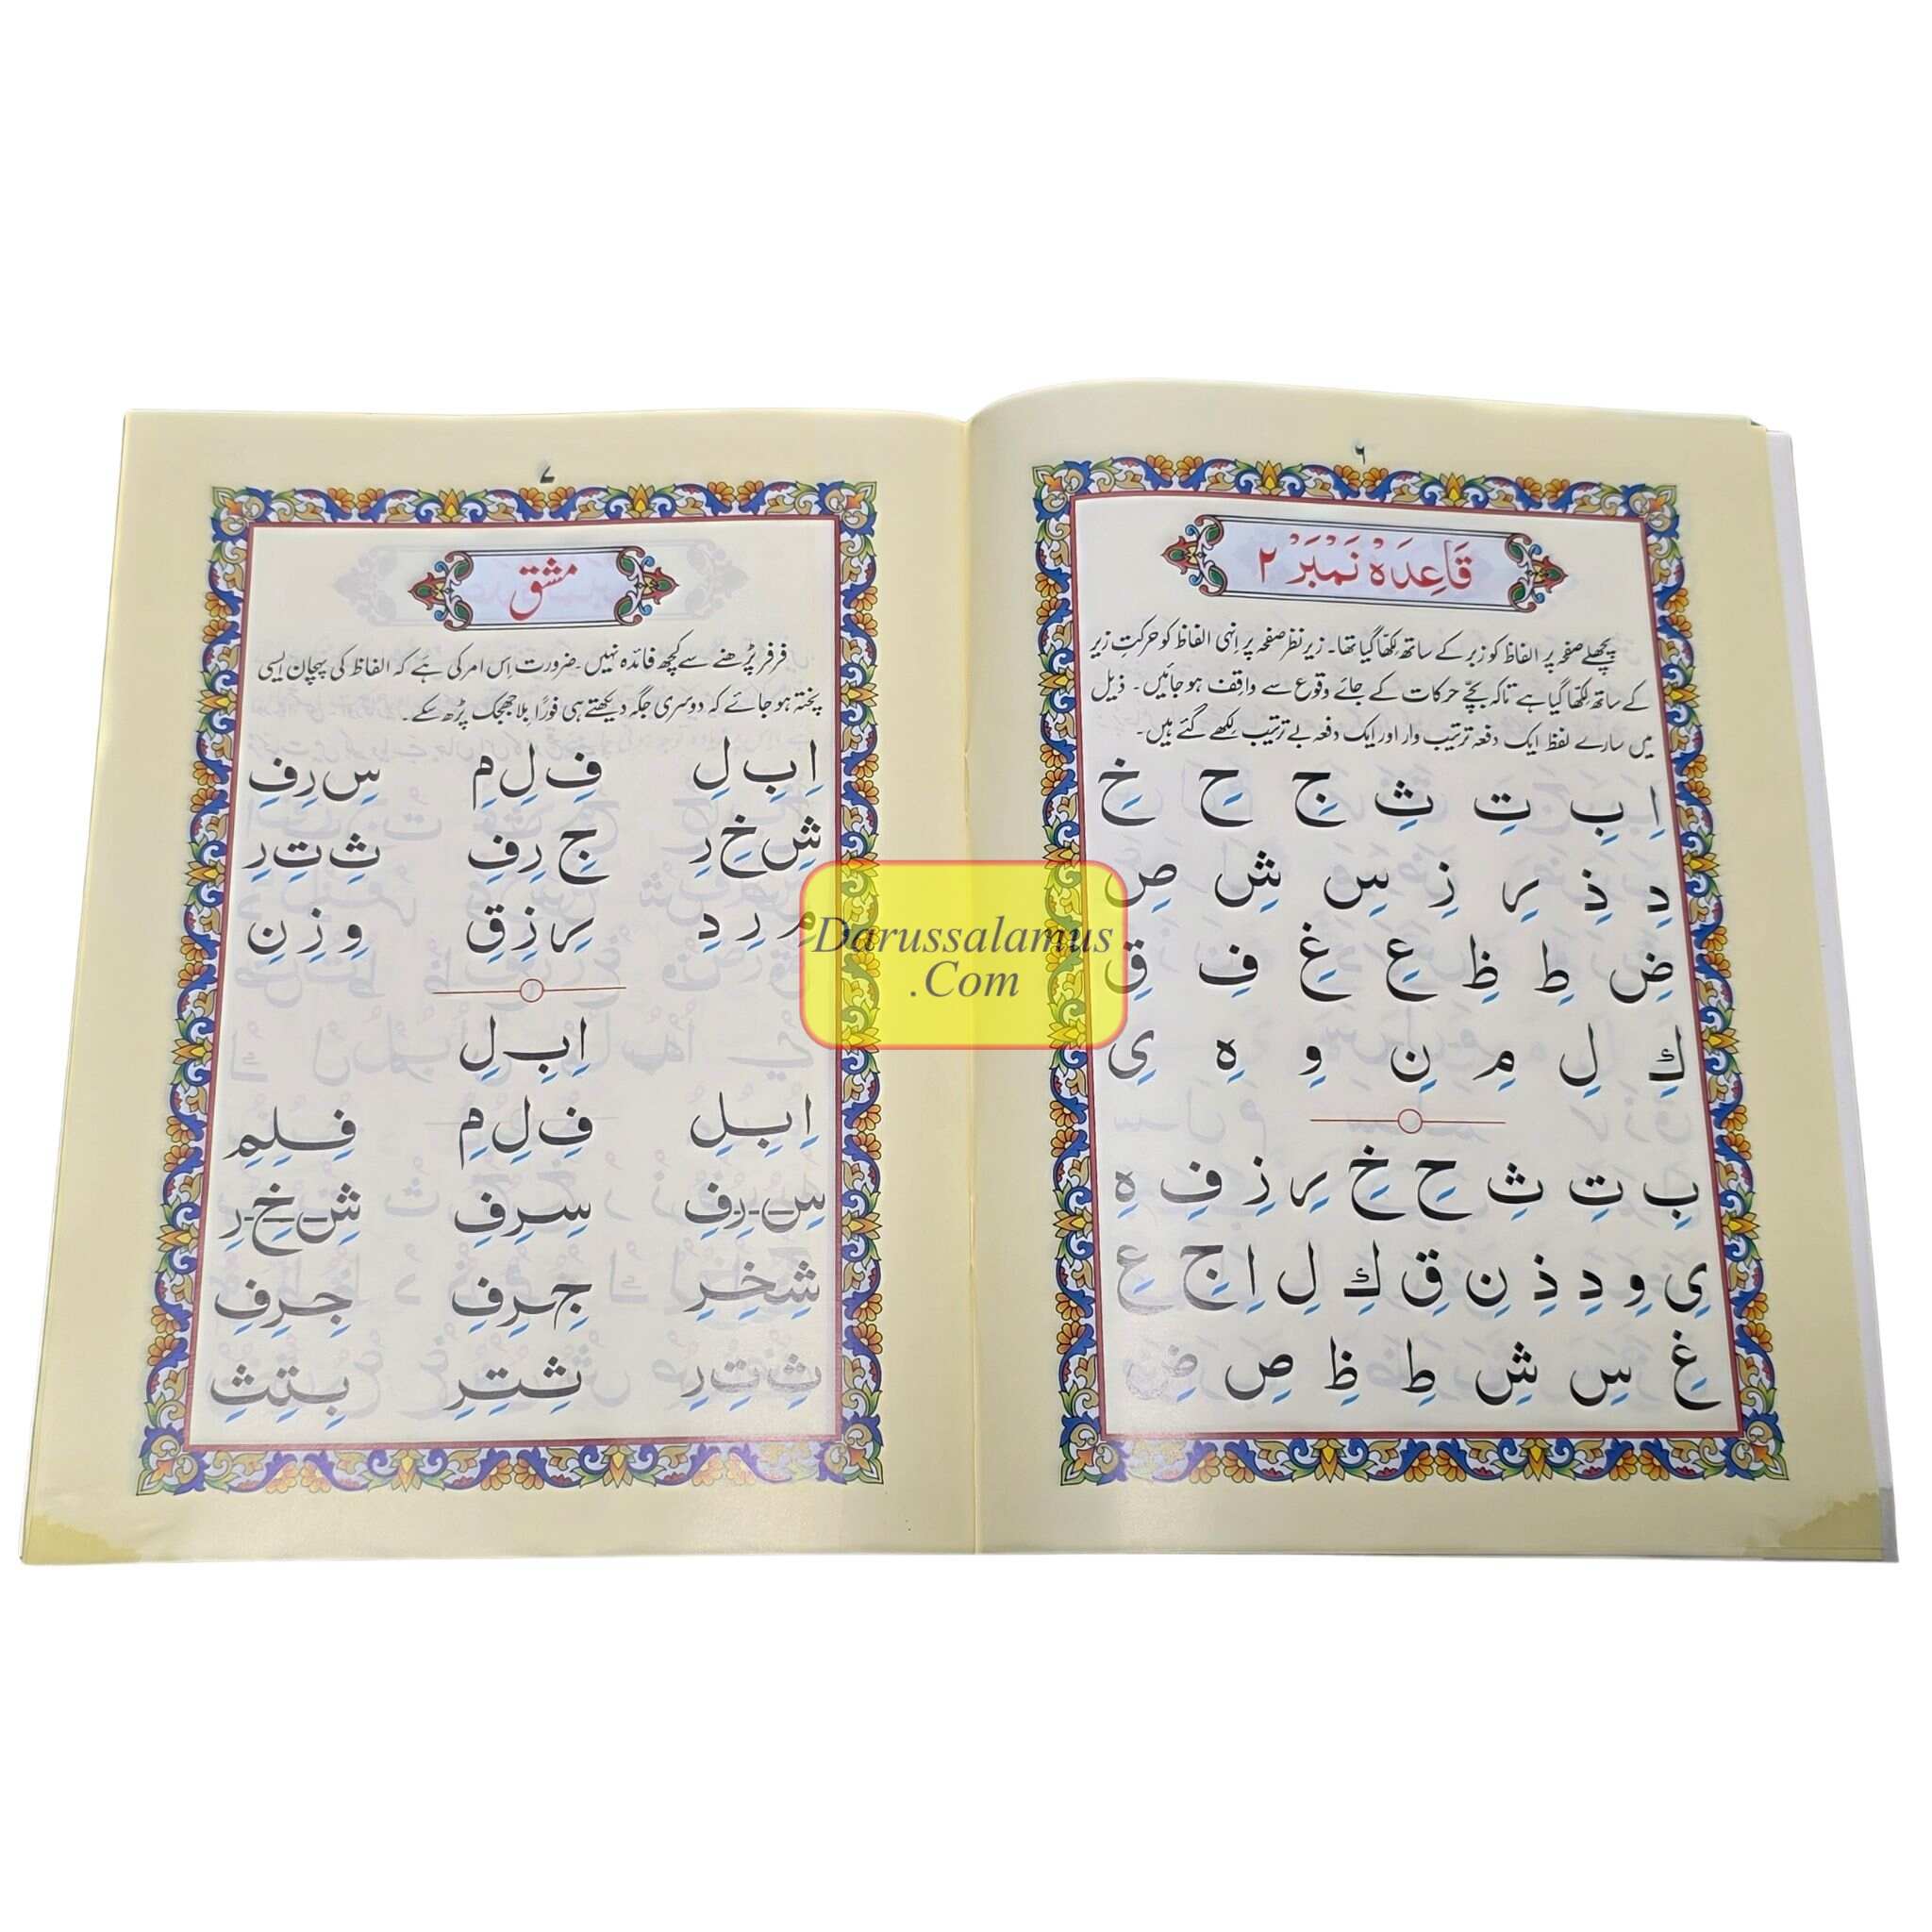 ۶
قَاعِدَہ نَمبَر ۲
پچھلے صفحہ پر الفاظ کو زبر کے ساتھ لکھا گیا تھا۔ زیر نظر صفحہ پر انہی الفاظ کو حرکتِ زیر
کے ساتھ لکھا گیا ہے تاکہ بچّے حرکات کے جائے وقوع سے واقف ہو جائیں۔ ذیل
میں سارے لفظ ایک دفعہ ترتیب وار اور ایک دفعہ بے ترتیب لکھے گئے ہیں۔
اِ بِ تِ ثِ جِ حِ خِ
دِ ذِ رِ زِ سِ شِ صِ
ضِ طِ ظِ عِ غِ فِ قِ
كِ لِ مِ نِ وِ هِ یِ
بِ تِ ثِ حِ خِ رِ زِ فِ هِ
یِ وِ دِ ذِ نِ قِ كِ لِ اِ جِ عِ
غِ سِ شِ طِ ظِ صِ ضِ
۷
مشق
فرفر پڑھنے سے کچھ فائدہ نہیں۔ ضرورت اِس امر کی ہے کہ الفاظ کی پہچان ایسی
پختہ ہو جائے کہ دوسری جگہ دیکھتے ہی فورًا بلا جھجک پڑھ سکے۔
اِ بِ لِ فِ لِ مِ سِ رِ فِ
شِ خِ رِ جِ رِ فِ ثِ تِ رِ
مِ رِ دِ رِ زِ قِ وِ زِ نِ
اِ بِ لِ
اِبِلِ فِ لِ مِ فِلِمِ
سِ-رِ-فِ سِرِفِ شِ-خِ-رِ
شِخِرِ جِ-رِفِ جِرِفِ
ثِ-تِ-رِ ثِتِرِ بِتِثِ
Darussalamus
.Com